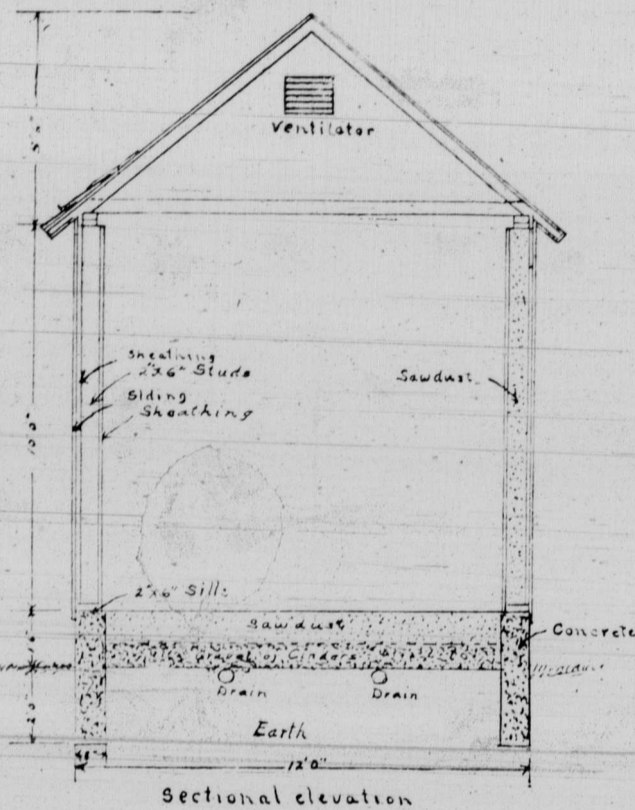 Ventilator
Sheathing
2"x6" Studs
Siding
Sheathing
Sawdust
10'0"
2"x6" Sills
Sawdust
Concrete
Gravel or Cinders
Drain
Drain
Earth
12'0"
Sectional elevation